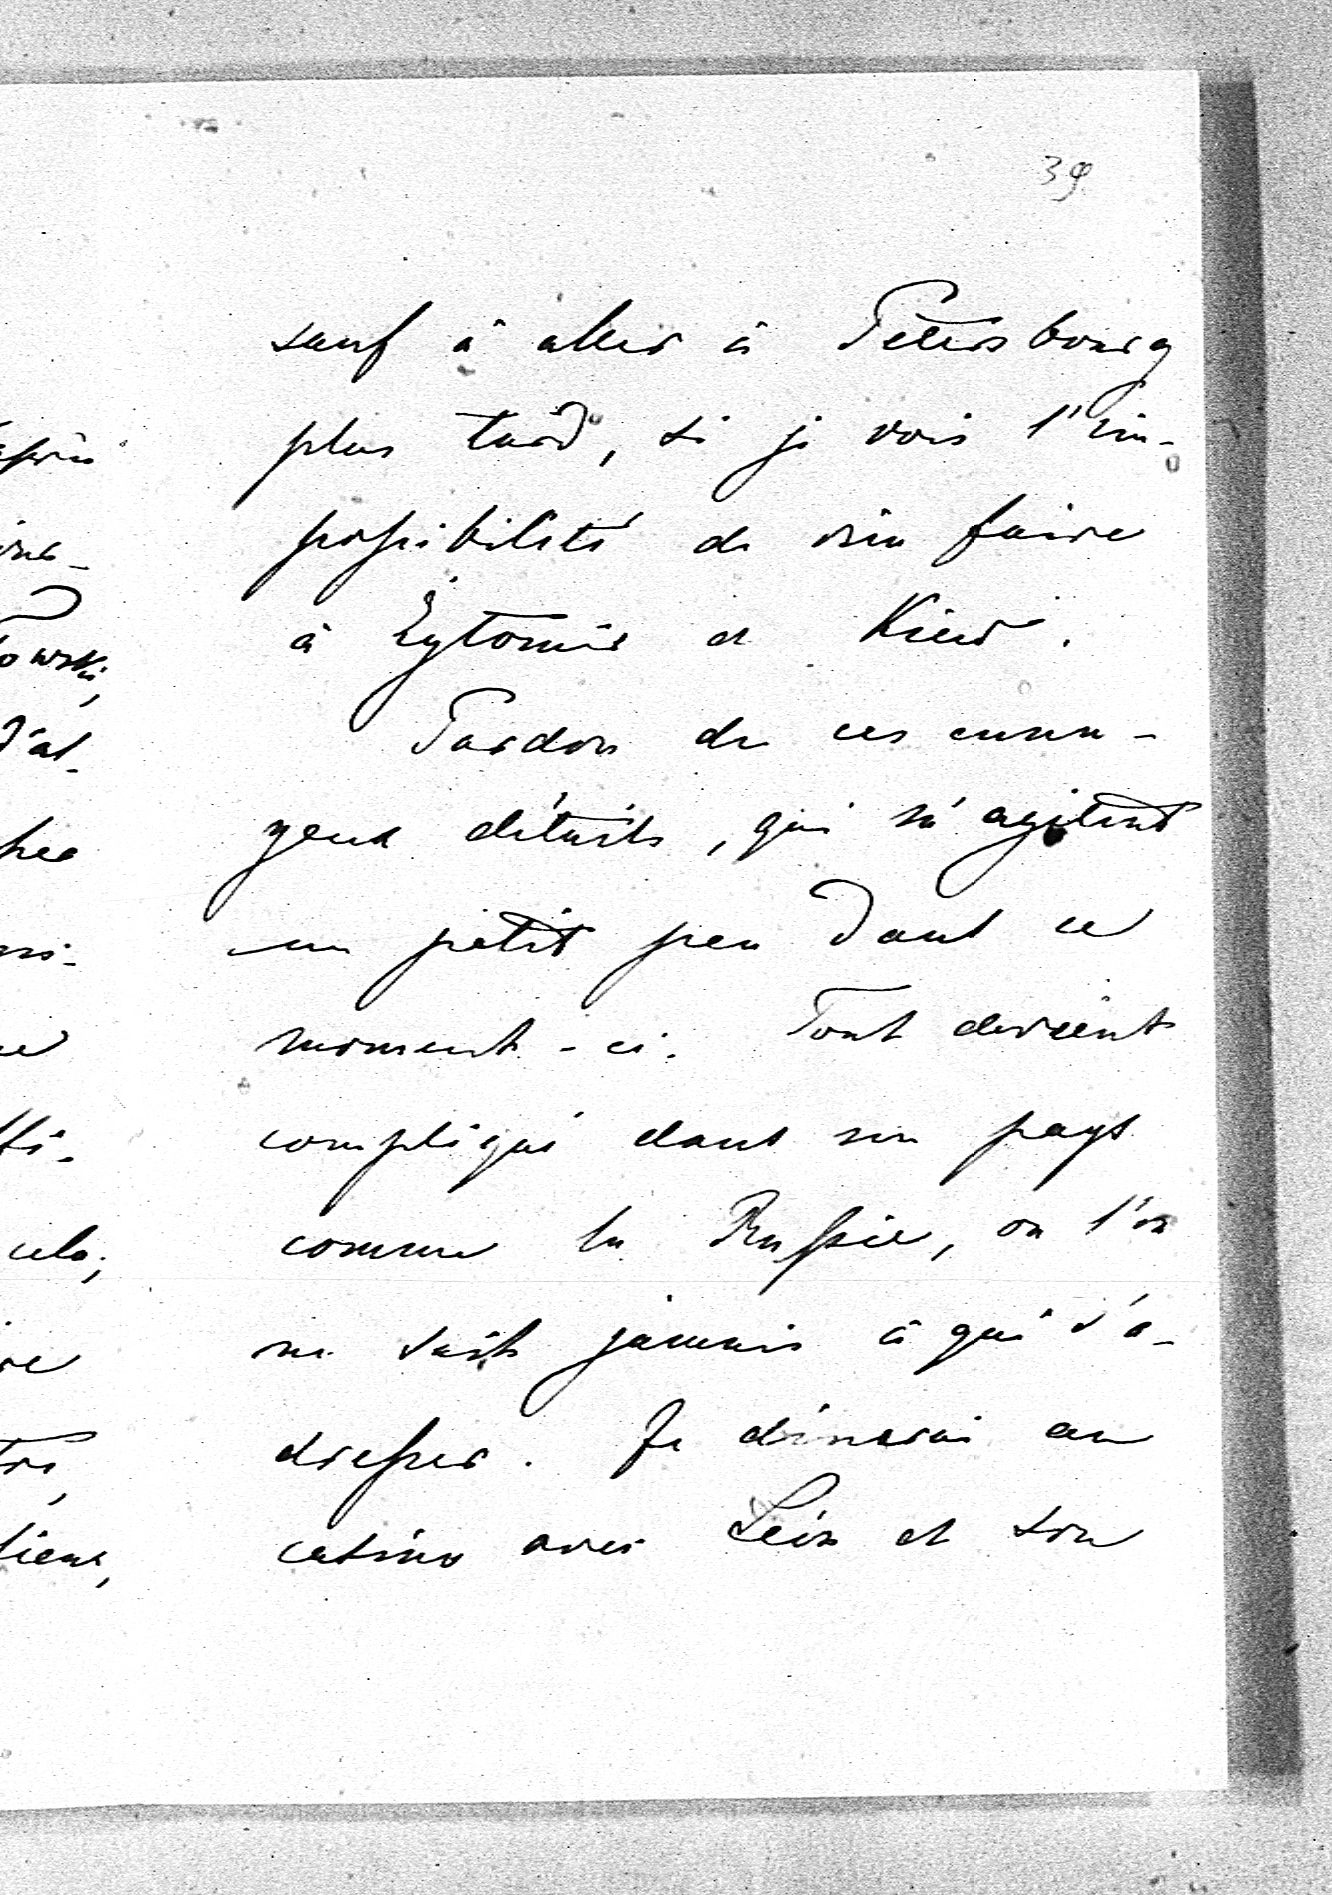 39
sauf à aller à Pétersbourg
plus tard, si je vois l'im-
possibilité de rien faire
à Żytomir et Kiew.
Pardon de ces ennu-
yeux détails, qui m'agitent
un petit peu dans ce
moment-ci. Tout devient
compliqué dans un pays
comme la Russie, où l'on
ne sait jamais à qui s'a-
dresser. Je dînerai au
casino avec Léon et son